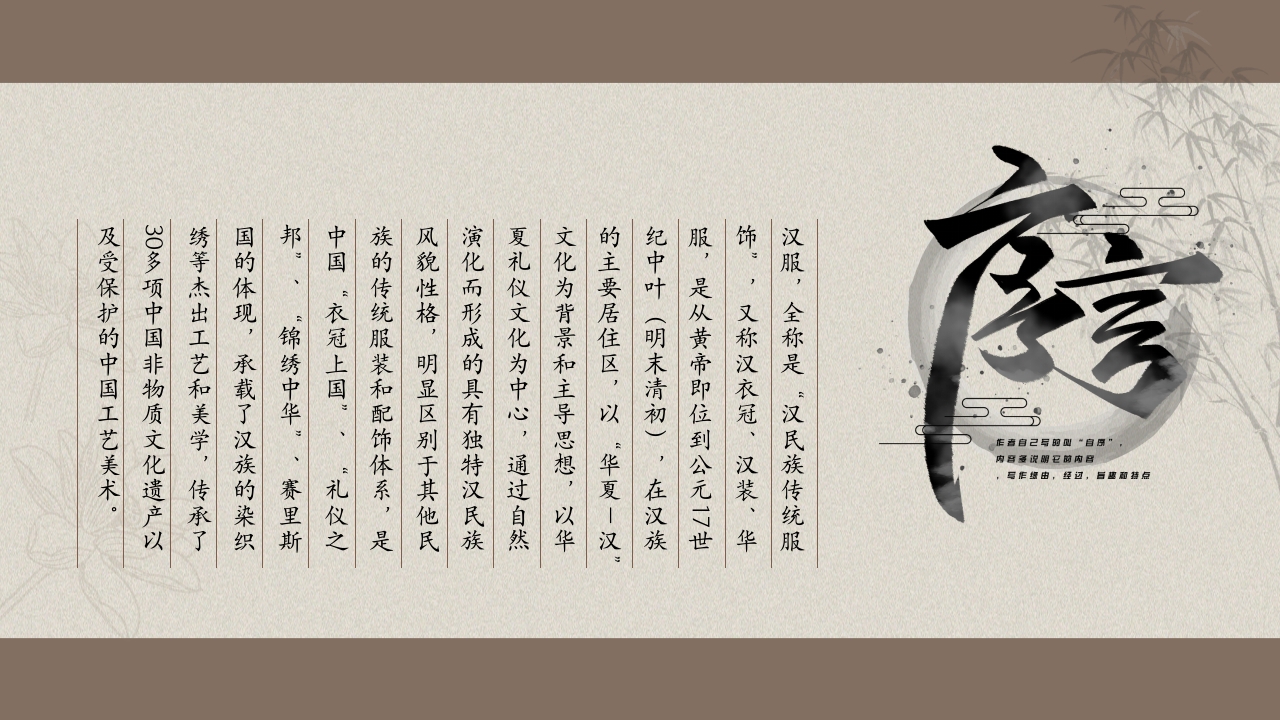 序言
作者自己写的叫“自序”，
内容多说明它的内容
，写作缘由，经过，旨趣和特点
汉服，全称是“汉民族传统服
饰”，又称汉衣冠、汉装、华
服，是从黄帝即位到公元17世
纪中叶（明末清初），在汉族
的主要居住区，以“华夏－汉”
文化为背景和主导思想，以华
夏礼仪文化为中心，通过自然
演化而形成的具有独特汉民族
风貌性格，明显区别于其他民
族的传统服装和配饰体系，是
中国“衣冠上国”、“礼仪之
邦”、“锦绣中华”、赛里斯
国的体现，承载了汉族的染织
绣等杰出工艺和美学，传承了
30多项中国非物质文化遗产以
及受保护的中国工艺美术。